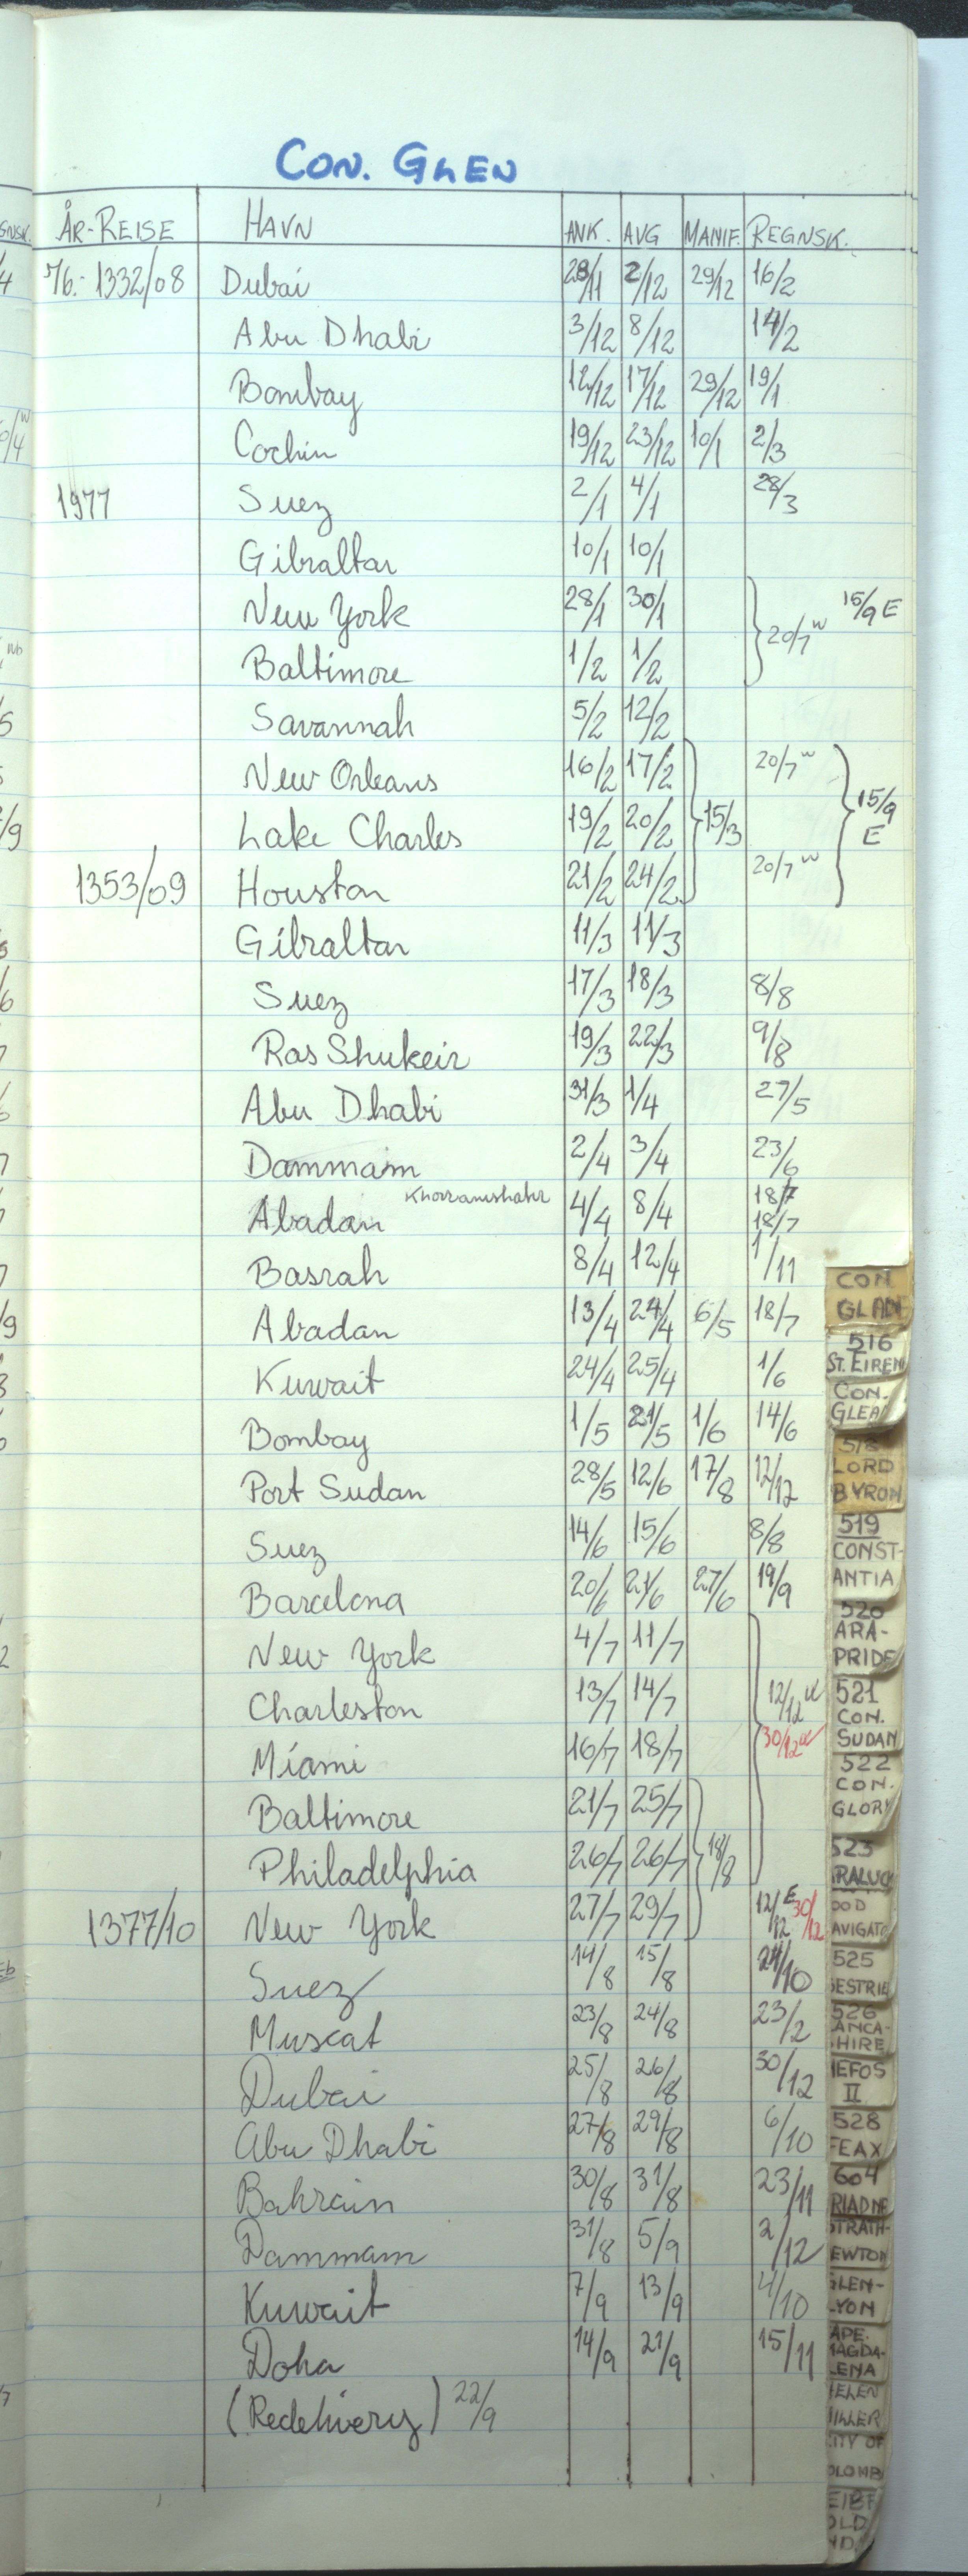 CON. GLEN
ÅR-REISE HAVN ANK. AVG MANIF. REGNSK.
76.- 1332/08 Dubai 28/11 2/12 29/12 16/2
Abu Dhabi 3/12 8/12 14/2
Bombay 12/12 17/12 29/12 19/1
Cochin 19/12 23/12 10/1 2/3
1977 Suez 2/1 4/1 28/3
Gibraltar 10/1 10/1
New York 28/1 30/1 20/7 W 15/9 E
Baltimore 1/2 1/2
Savannah 5/2 12/2
New Orleans 16/2 17/2 20/7 W
Lake Charles 19/2 20/2 15/3 15/9 E
1353/09 Houston 21/2 24/2 20/7 W
Gibraltar 11/3 11/3
Suez 17/3 18/3 8/8
Ras Shukeir 19/3 22/3 9/8
Abu Dhabi 31/3 1/4 27/5
Dammam 2/4 3/4 23/6
Khorramshahr 18/7
Abadan 4/4 8/4 18/7
Basrah 8/4 12/4 1/11
Abadan 13/4 24/4 6/5 18/7
Kuwait 24/4 25/4 1/6
Bombay 1/5 21/5 1/6 14/6
Port Sudan 28/5 12/6 17/8 12/12
Suez 14/6 15/6 8/8
Barcelona 20/6 21/6 27/6 19/9
New York 4/7 11/7
Charleston 13/7 14/7 12/12
Miami 16/7 18/7 30/12
Baltimore 21/7 25/7
Philadelphia 26/7 26/7 18/8
1377/10 New York 27/7 29/7 12/12 E 30/12
Suez 14/8 15/8 24/10
Muscat 23/8 24/8 23/2
Dubai 25/8 26/8 30/12
Abu Dhabi 27/8 29/8 6/10
Bahrain 30/8 31/8 23/11
Dammam 31/8 5/9 2/12
Kuwait 7/9 13/9 4/10
Doha 14/9 21/9 15/11
(Redelivery) 22/9
CON.
GLADE
516
ST. EIREN
CON.
GLEA
518
LORD
BYRON
519
CONST-
ANTIA
520
ARA-
PRIDE
521
CON.
SUDAN
522
CON.
GLORY
523
RALUCK
OOD
AVIGATO
525
SESTRIE
526
ANCA-
HIRE
EFOS
II
528
FEAX
604
RIADNE
STRATH-
EWTON
GLEN-
LYON
APE.
MAGDA-
LENA
HELEN
MILLER
CITY OF
OLOMB